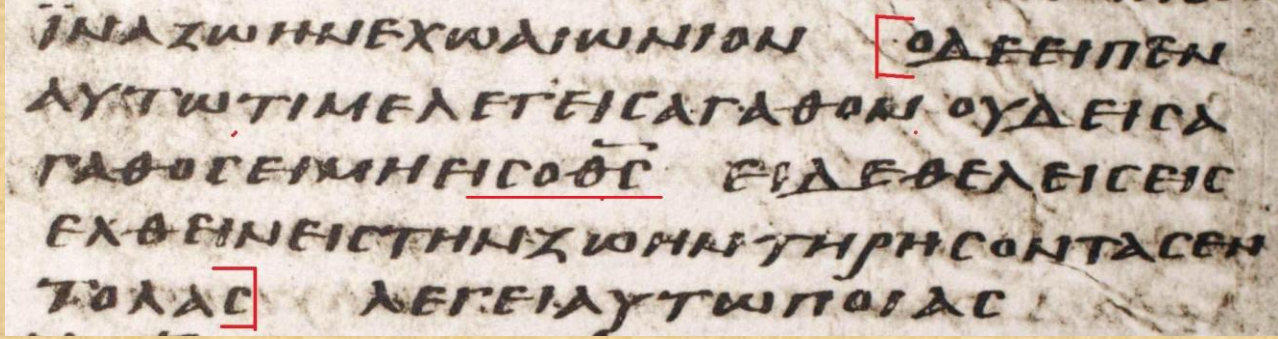 ΪΝΑΖΩΗΝΕΧΩΑΙΩΝΙΟΝ ΟΔΕΕΙΠΕΝ
ΑΥΤΩΤΙΜΕΛΕΓΕΙϹΑΓΑΘΟΝ ΟΥΔΕΙϹΑ
ΓΑΘΟϹΕΙΜΗΕΙϹΟΘ̅Ϲ̅ ΕΙΔΕΘΕΛΕΙϹΕΙϹ
ΕΛΘΕΙΝΕΙϹΤΗΝΖΩΗΝΤΗΡΗϹΟΝΤΑϹΕΝ
ΤΟΛΑϹ ΛΕΓΕΙΑΥΤΩΠΟΙΑϹ